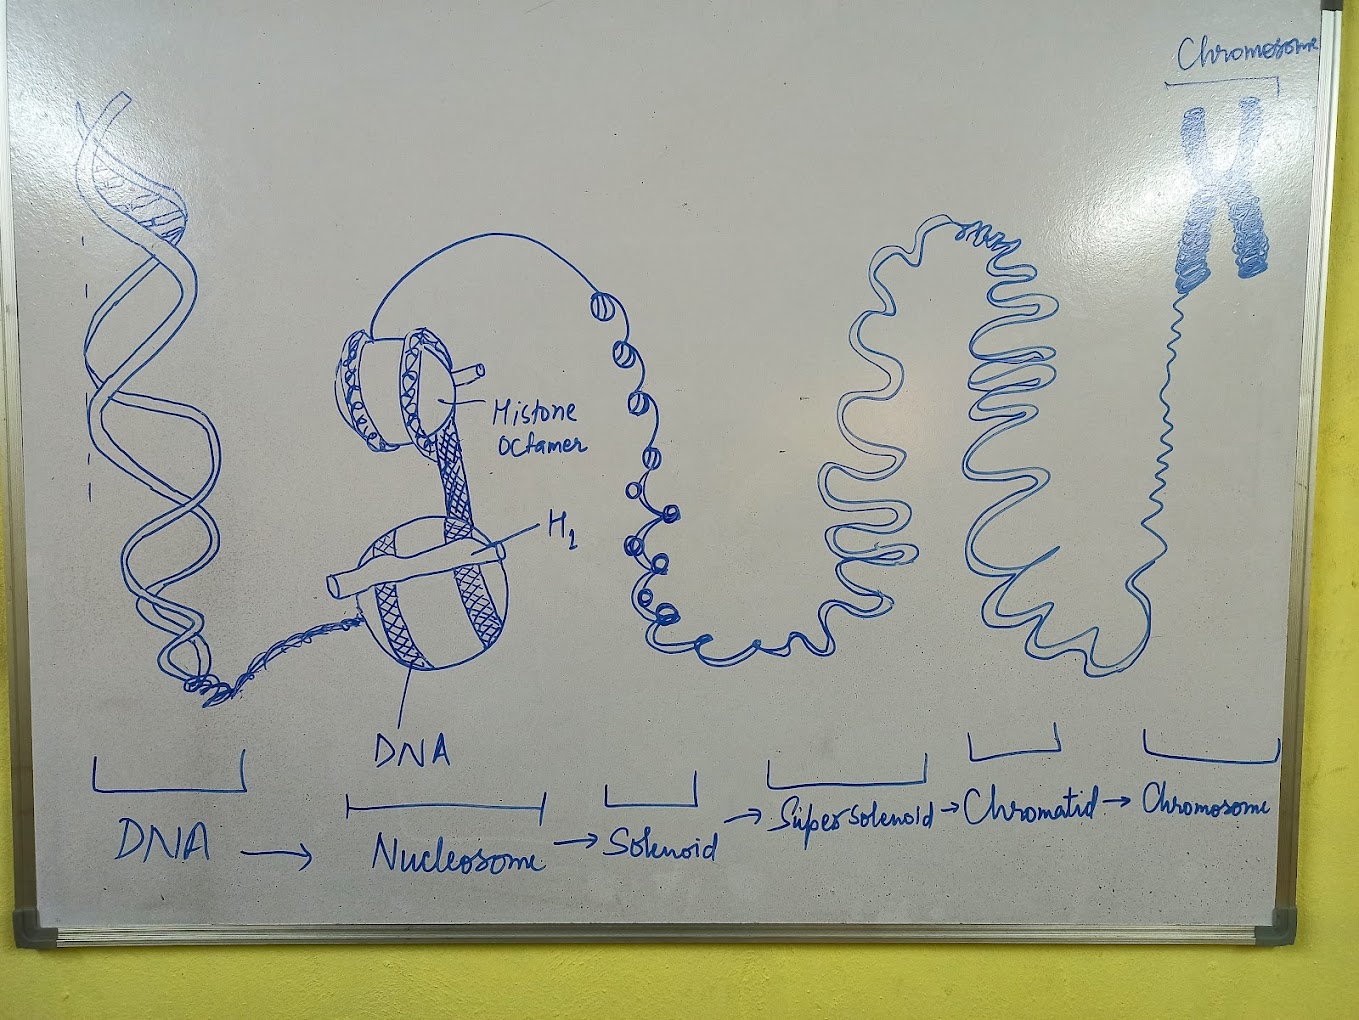 Chromosome
Histone
Octamer
H1
DNA
DNA → Nucleosome → Solenoid → Supersolenoid → Chromatid → Chromosome